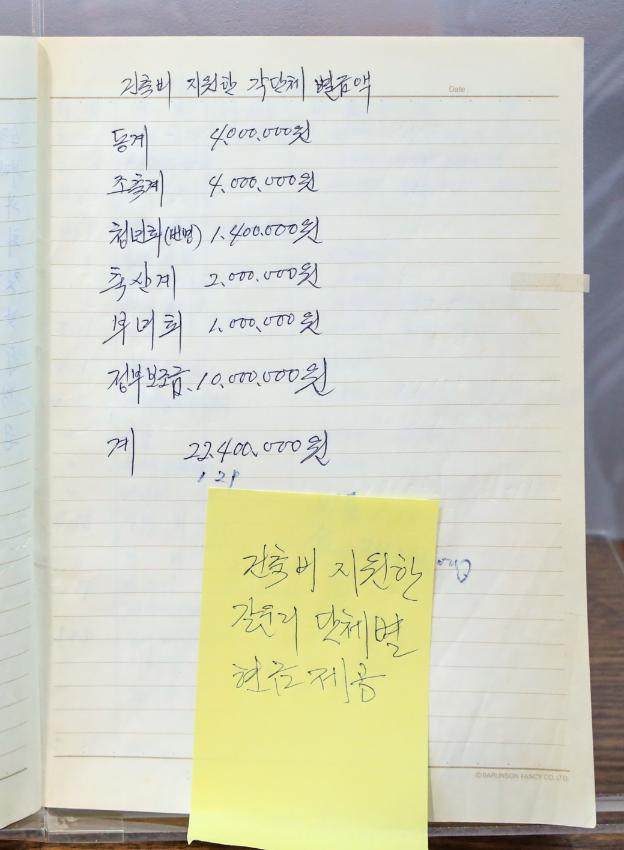 건축비 지원한 각단체 별금액
Date
동계 4,000,000원
조축계 4,000,000원
청년회(번영) 1,400,000원
축산계 2,000,000원
부녀회 1,000,000원
정부보조금 10,000,000원
계 22,400,000원
건축비 지원한
갈운리 단체별
현금 제공
©BARUNSON FANCY CO., LTD.